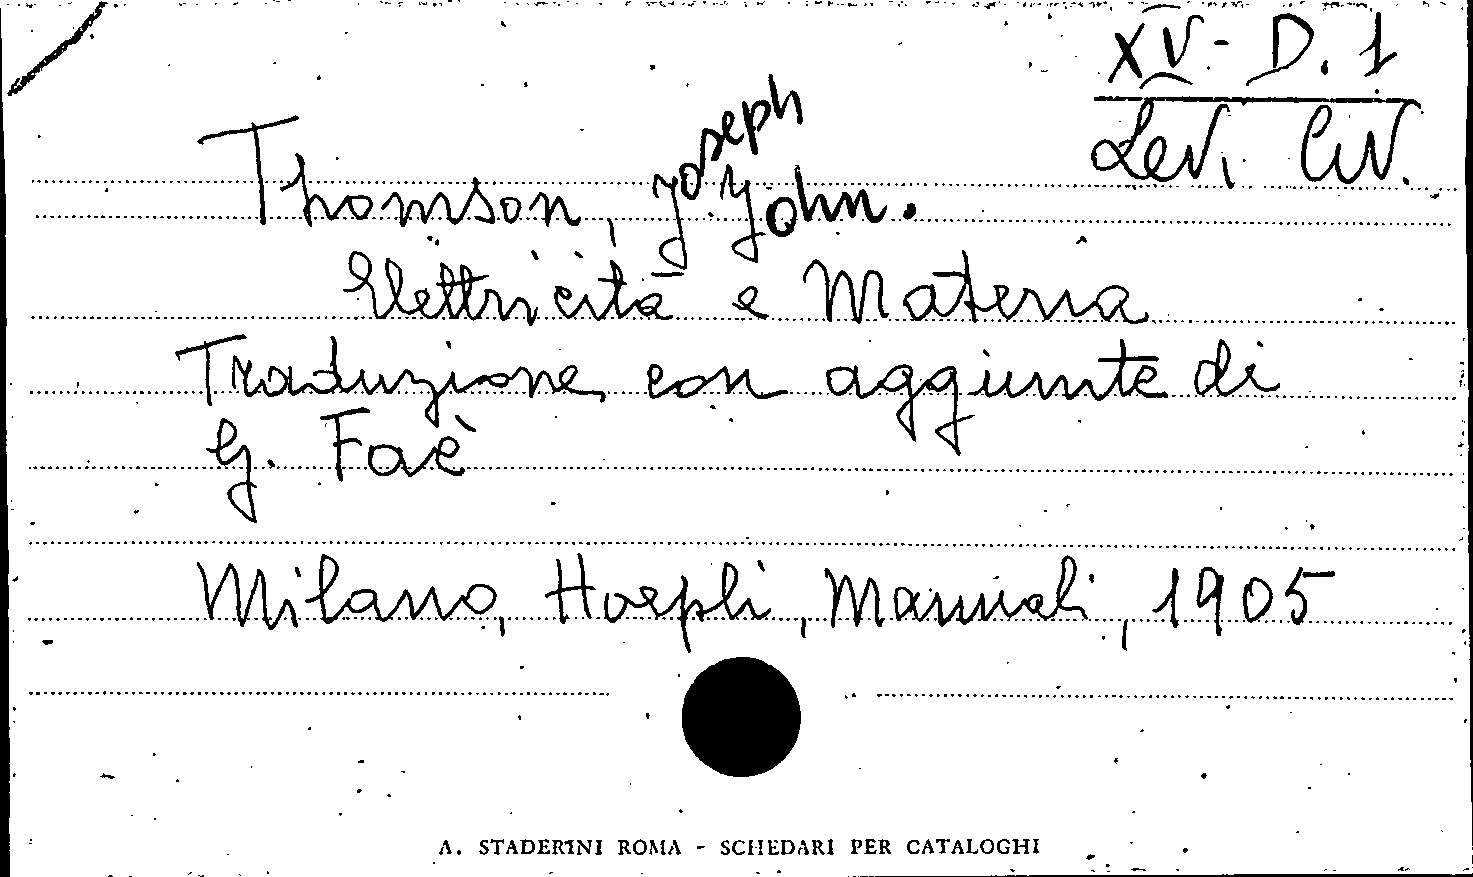 XV - D. 1
Lev. Civ.
Thomson, Joseph John.
Elettricità e Materia
Traduzione con aggiunte di
G. Faè
Milano, Hoepli, Manuali, 1905
A. STADERINI ROMA - SCHEDARI PER CATALOGHI